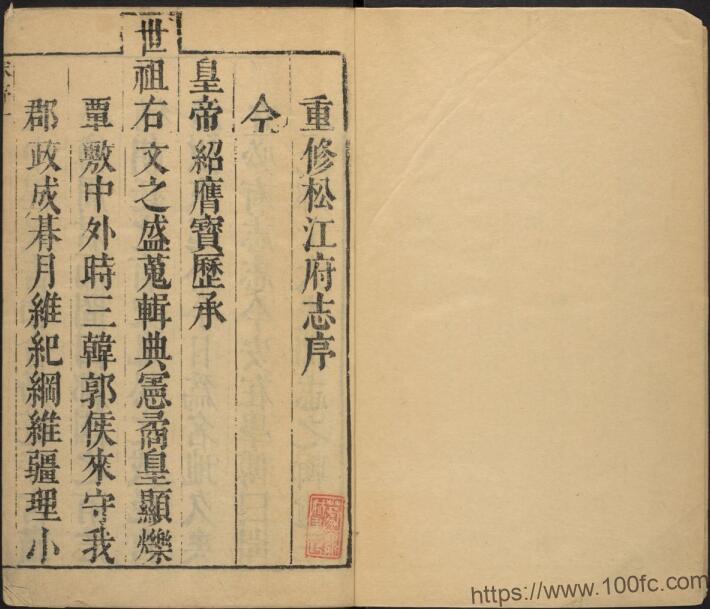 重修松江府志序
今
皇帝紹膺寶歷承
世祖右文之盛蒐輯典憲矞皇顯爍
覃敷中外時三韓郭侯來守我
郡政成朞月維紀綱維疆理小
https://www.100fc.com